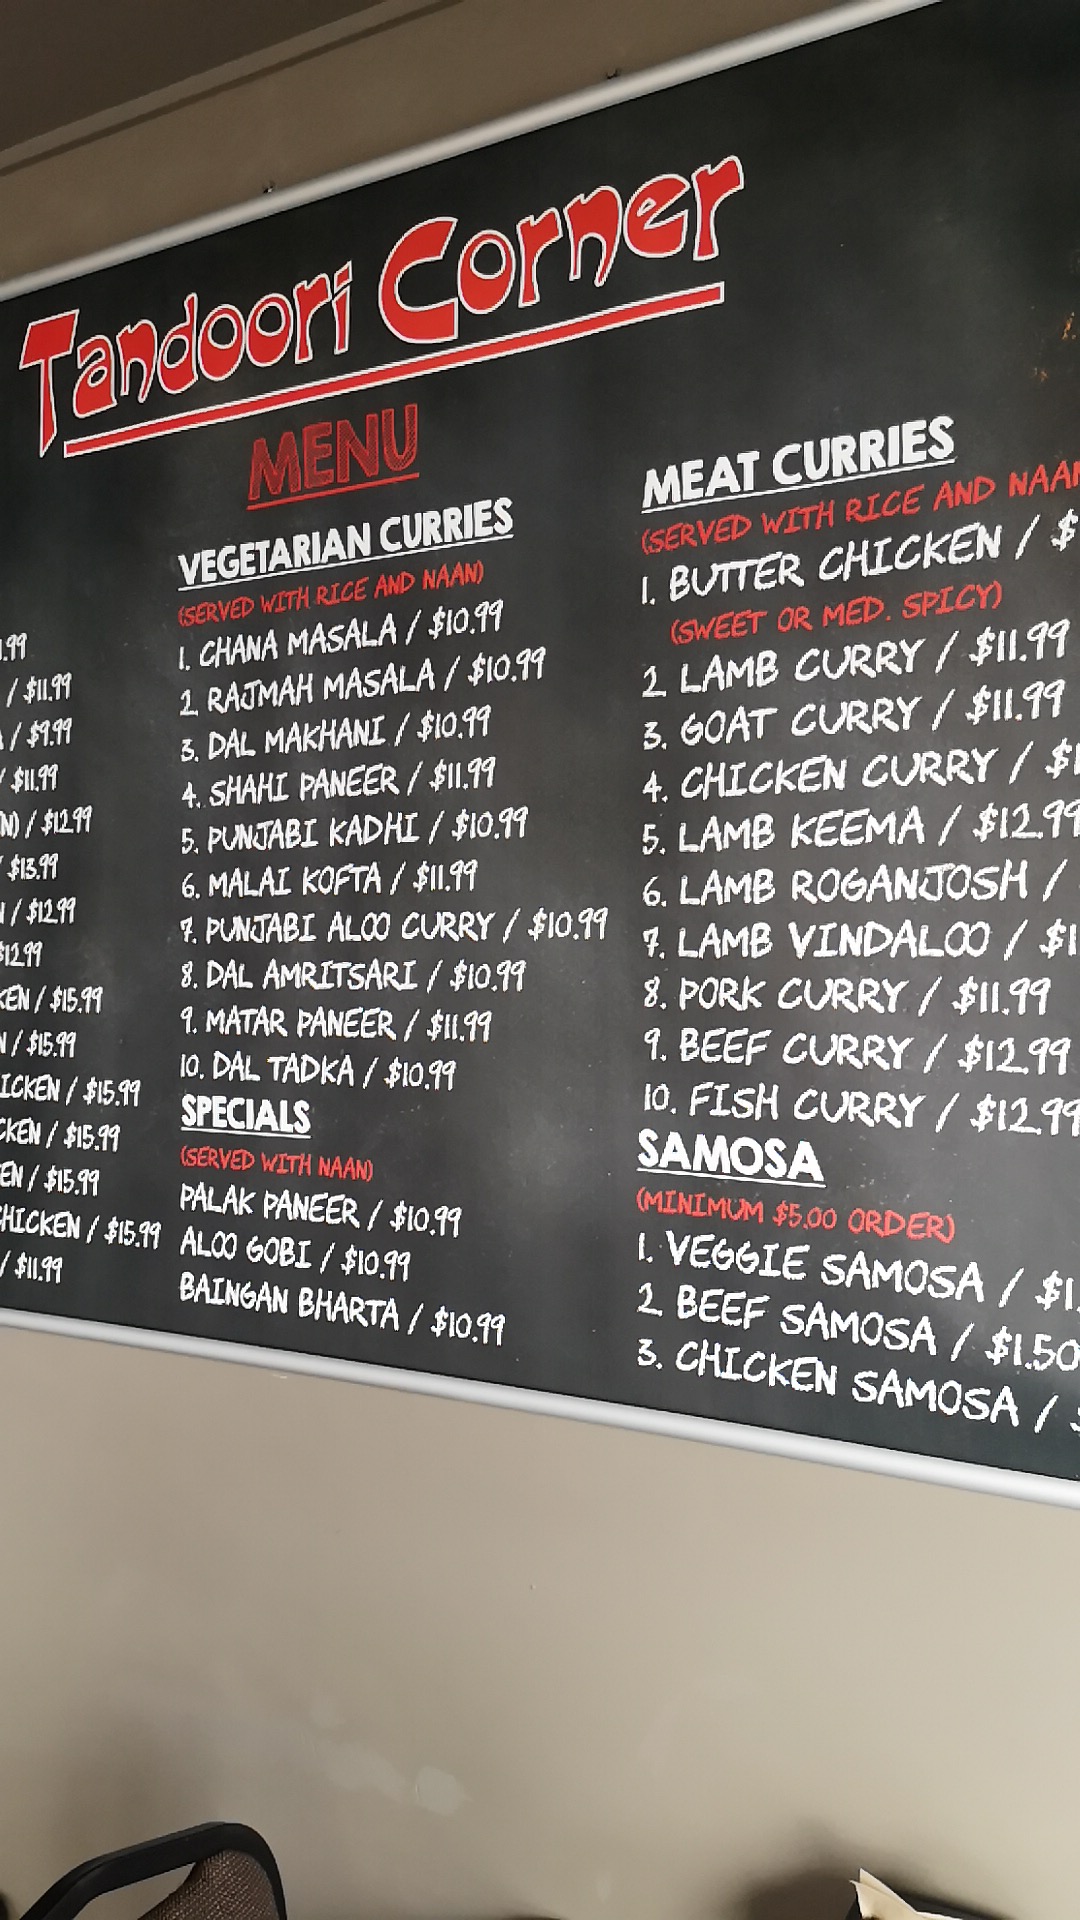 Tandoori Corner
MENU
.99
/ $11.99
/ $9.99
/ $11.99
/ $12.99
/ $13.99
/ $12.99
$12.99
/ $15.99
/ $15.99
/ $15.99
/ $15.99
/ $15.99
CHICKEN / $15.99
/ $11.99
VEGETARIAN CURRIES
(SERVED WITH RICE AND NAAN)
1. CHANA MASALA / $10.99
2 RAJMAH MASALA / $10.99
3. DAL MAKHANI / $10.99
4. SHAHI PANEER / $11.99
5. PUNJABI KADHI / $10.99
6. MALAI KOFTA / $11.99
7. PUNJABI ALOO CURRY / $10.99
8. DAL AMRITSARI / $10.99
9. MATAR PANEER / $11.99
10. DAL TADKA / $10.99
SPECIALS
(SERVED WITH NAAN)
PALAK PANEER / $10.99
ALOO GOBI / $10.99
BAINGAN BHARTA / $10.99
MEAT CURRIES
(SERVED WITH RICE AND NAAN
1. BUTTER CHICKEN / $
(SWEET OR MED. SPICY)
2 LAMB CURRY / $11.99
3. GOAT CURRY / $11.99
4. CHICKEN CURRY / $1
5. LAMB KEEMA / $12.99
6. LAMB ROGANJOSH /
7. LAMB VINDALOO / $1
8. PORK CURRY / $11.99
9. BEEF CURRY / $12.99
10. FISH CURRY / $12.99
SAMOSA
(MINIMUM $5.00 ORDER)
1. VEGGIE SAMOSA / $1.
2 BEEF SAMOSA / $1.50
3. CHICKEN SAMOSA /